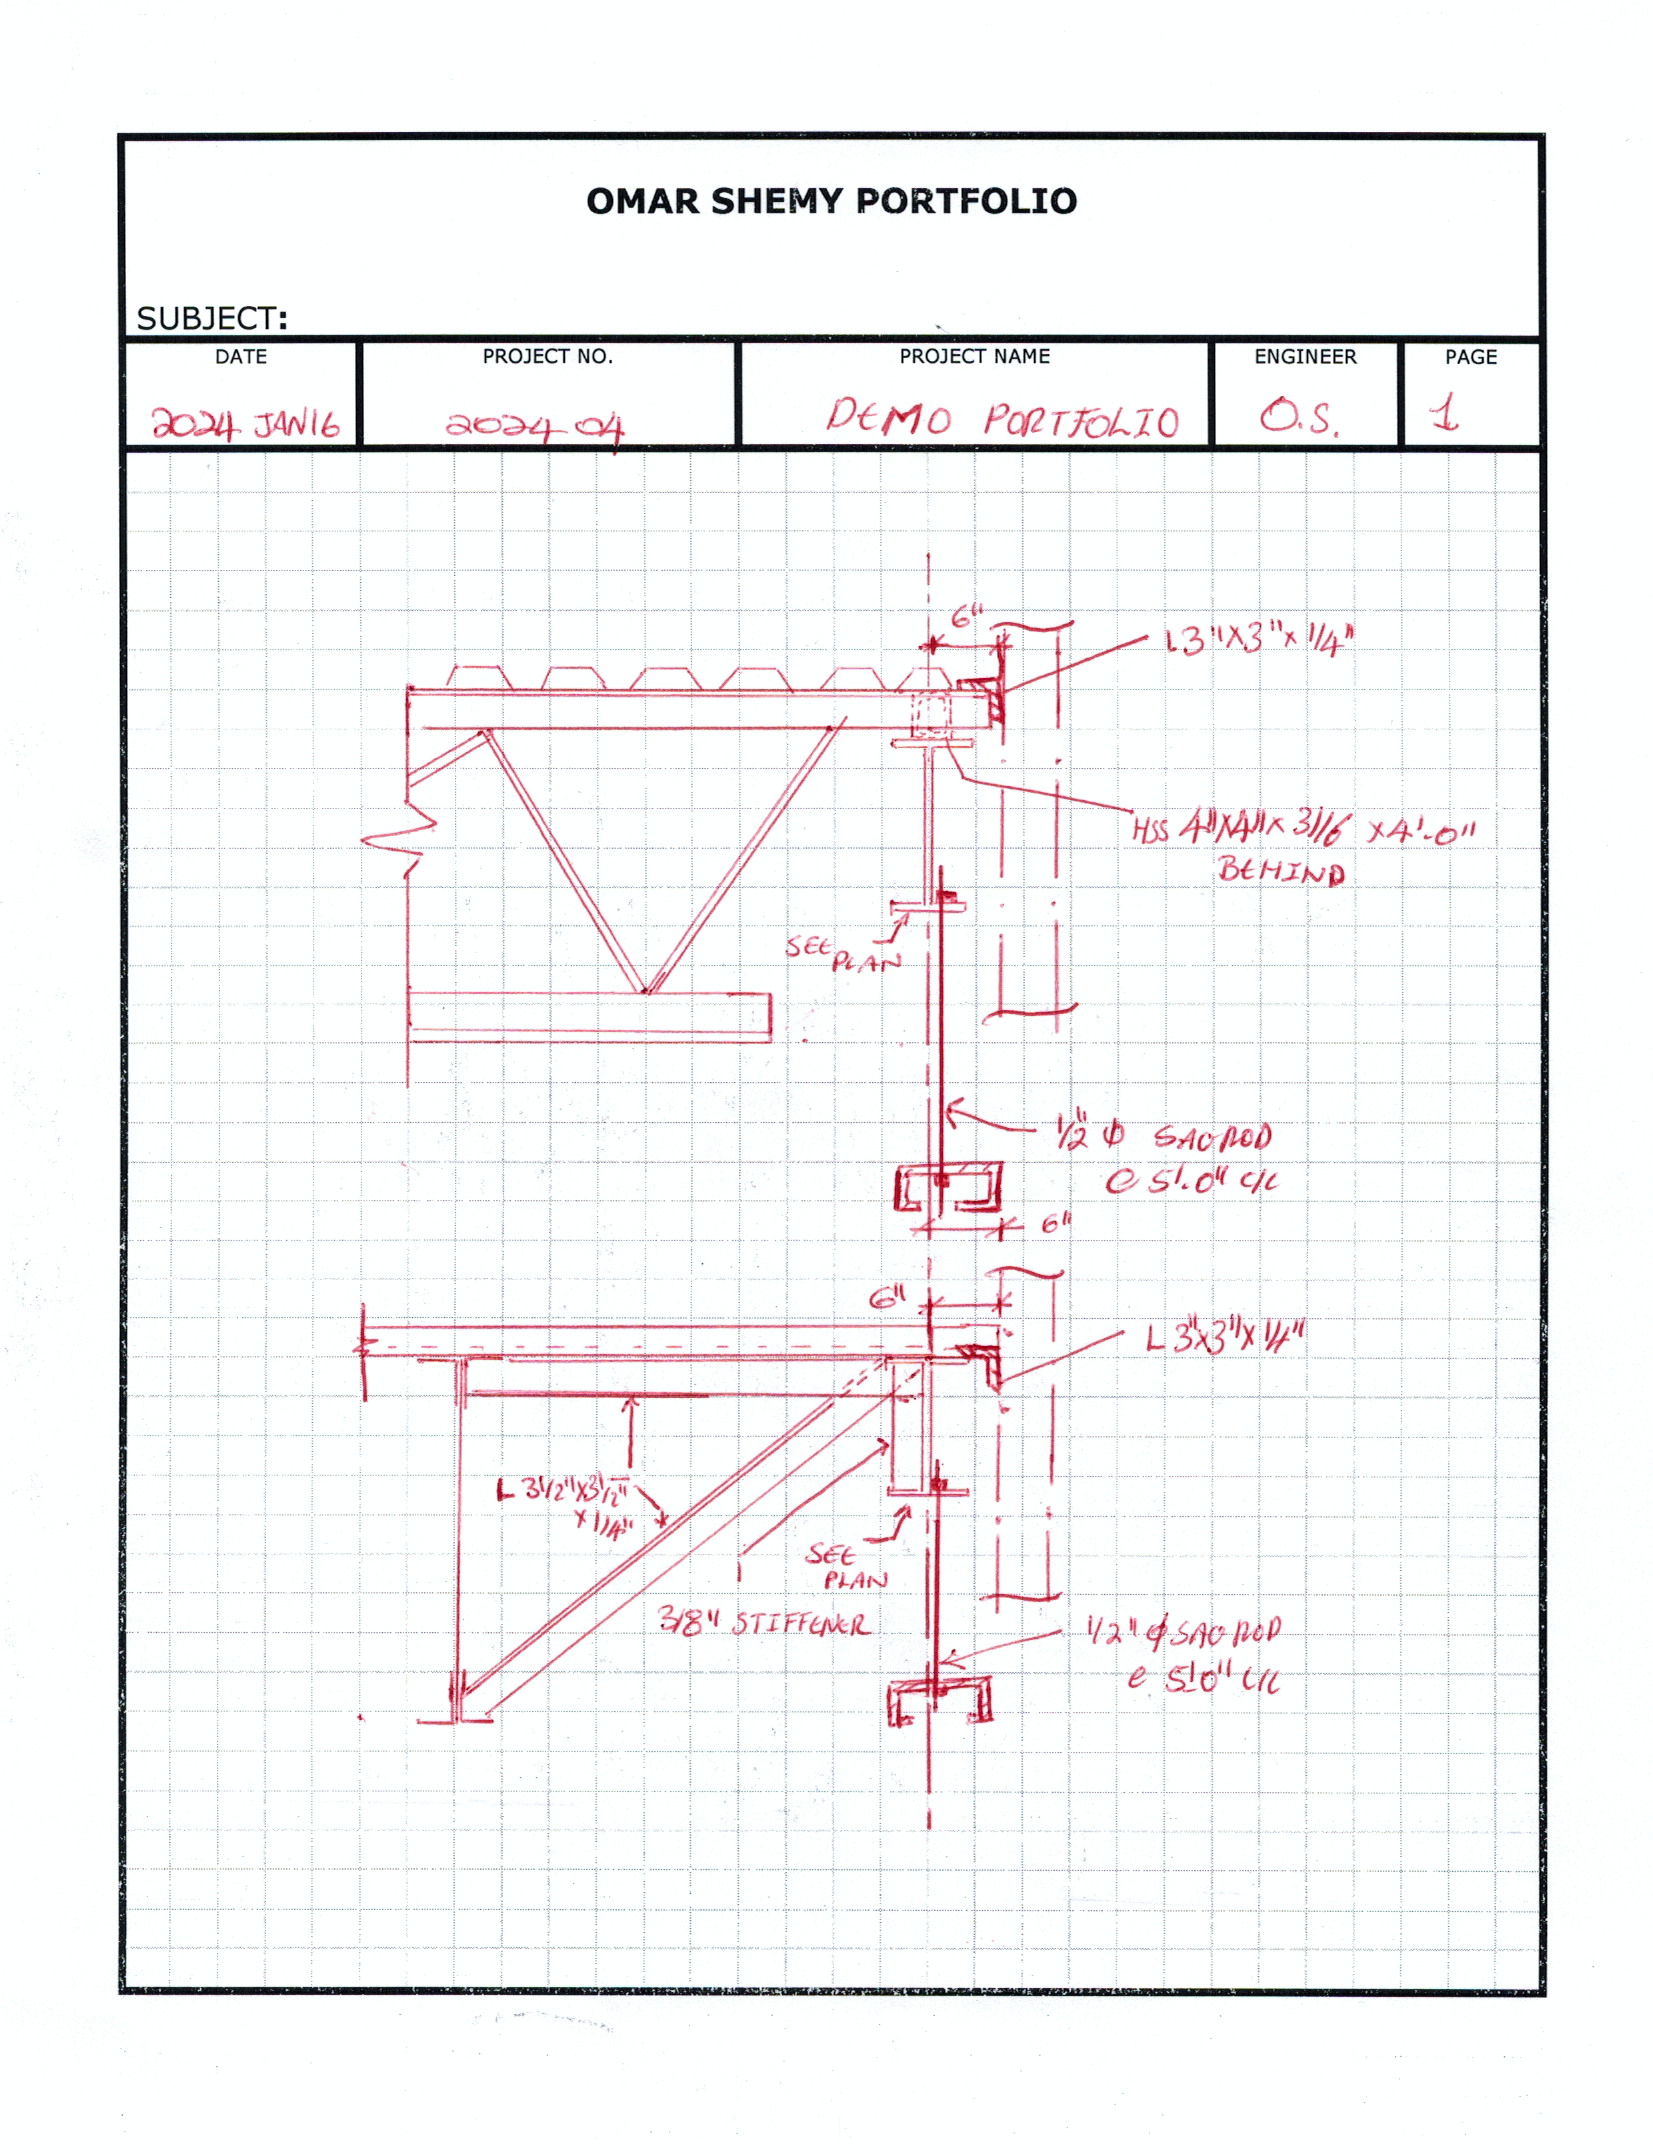 OMAR SHEMY PORTFOLIO
SUBJECT:
DATE
PROJECT NO.
PROJECT NAME
ENGINEER
PAGE
2024 JAN 16
2024-04
DEMO PORTFOLIO
O.S.
1
6"
L3"X3"X1/4"
HSS 4"X4"X3/16 X4'-0"
BEHIND
SEE
PLAN
1/2" Φ SAG ROD
@ 5'-0" C/C
6"
6"
L 3"X3"X1/4"
L 3 1/2"X3 1/2"
X1/4"
SEE
PLAN
3/8" STIFFENER
1/2" Φ SAG ROD
@ 5'-0" C/C